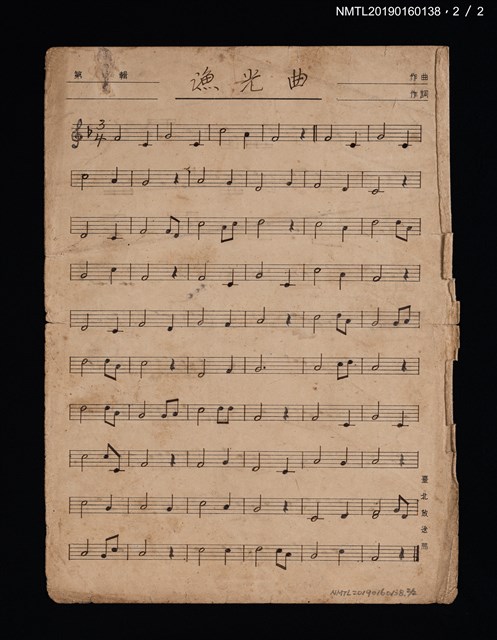 NMTL20190160138，2 / 2
第 輯
漁光曲
作曲
作詞
3
4
臺北放送局
NMTL20190160138, 2/2